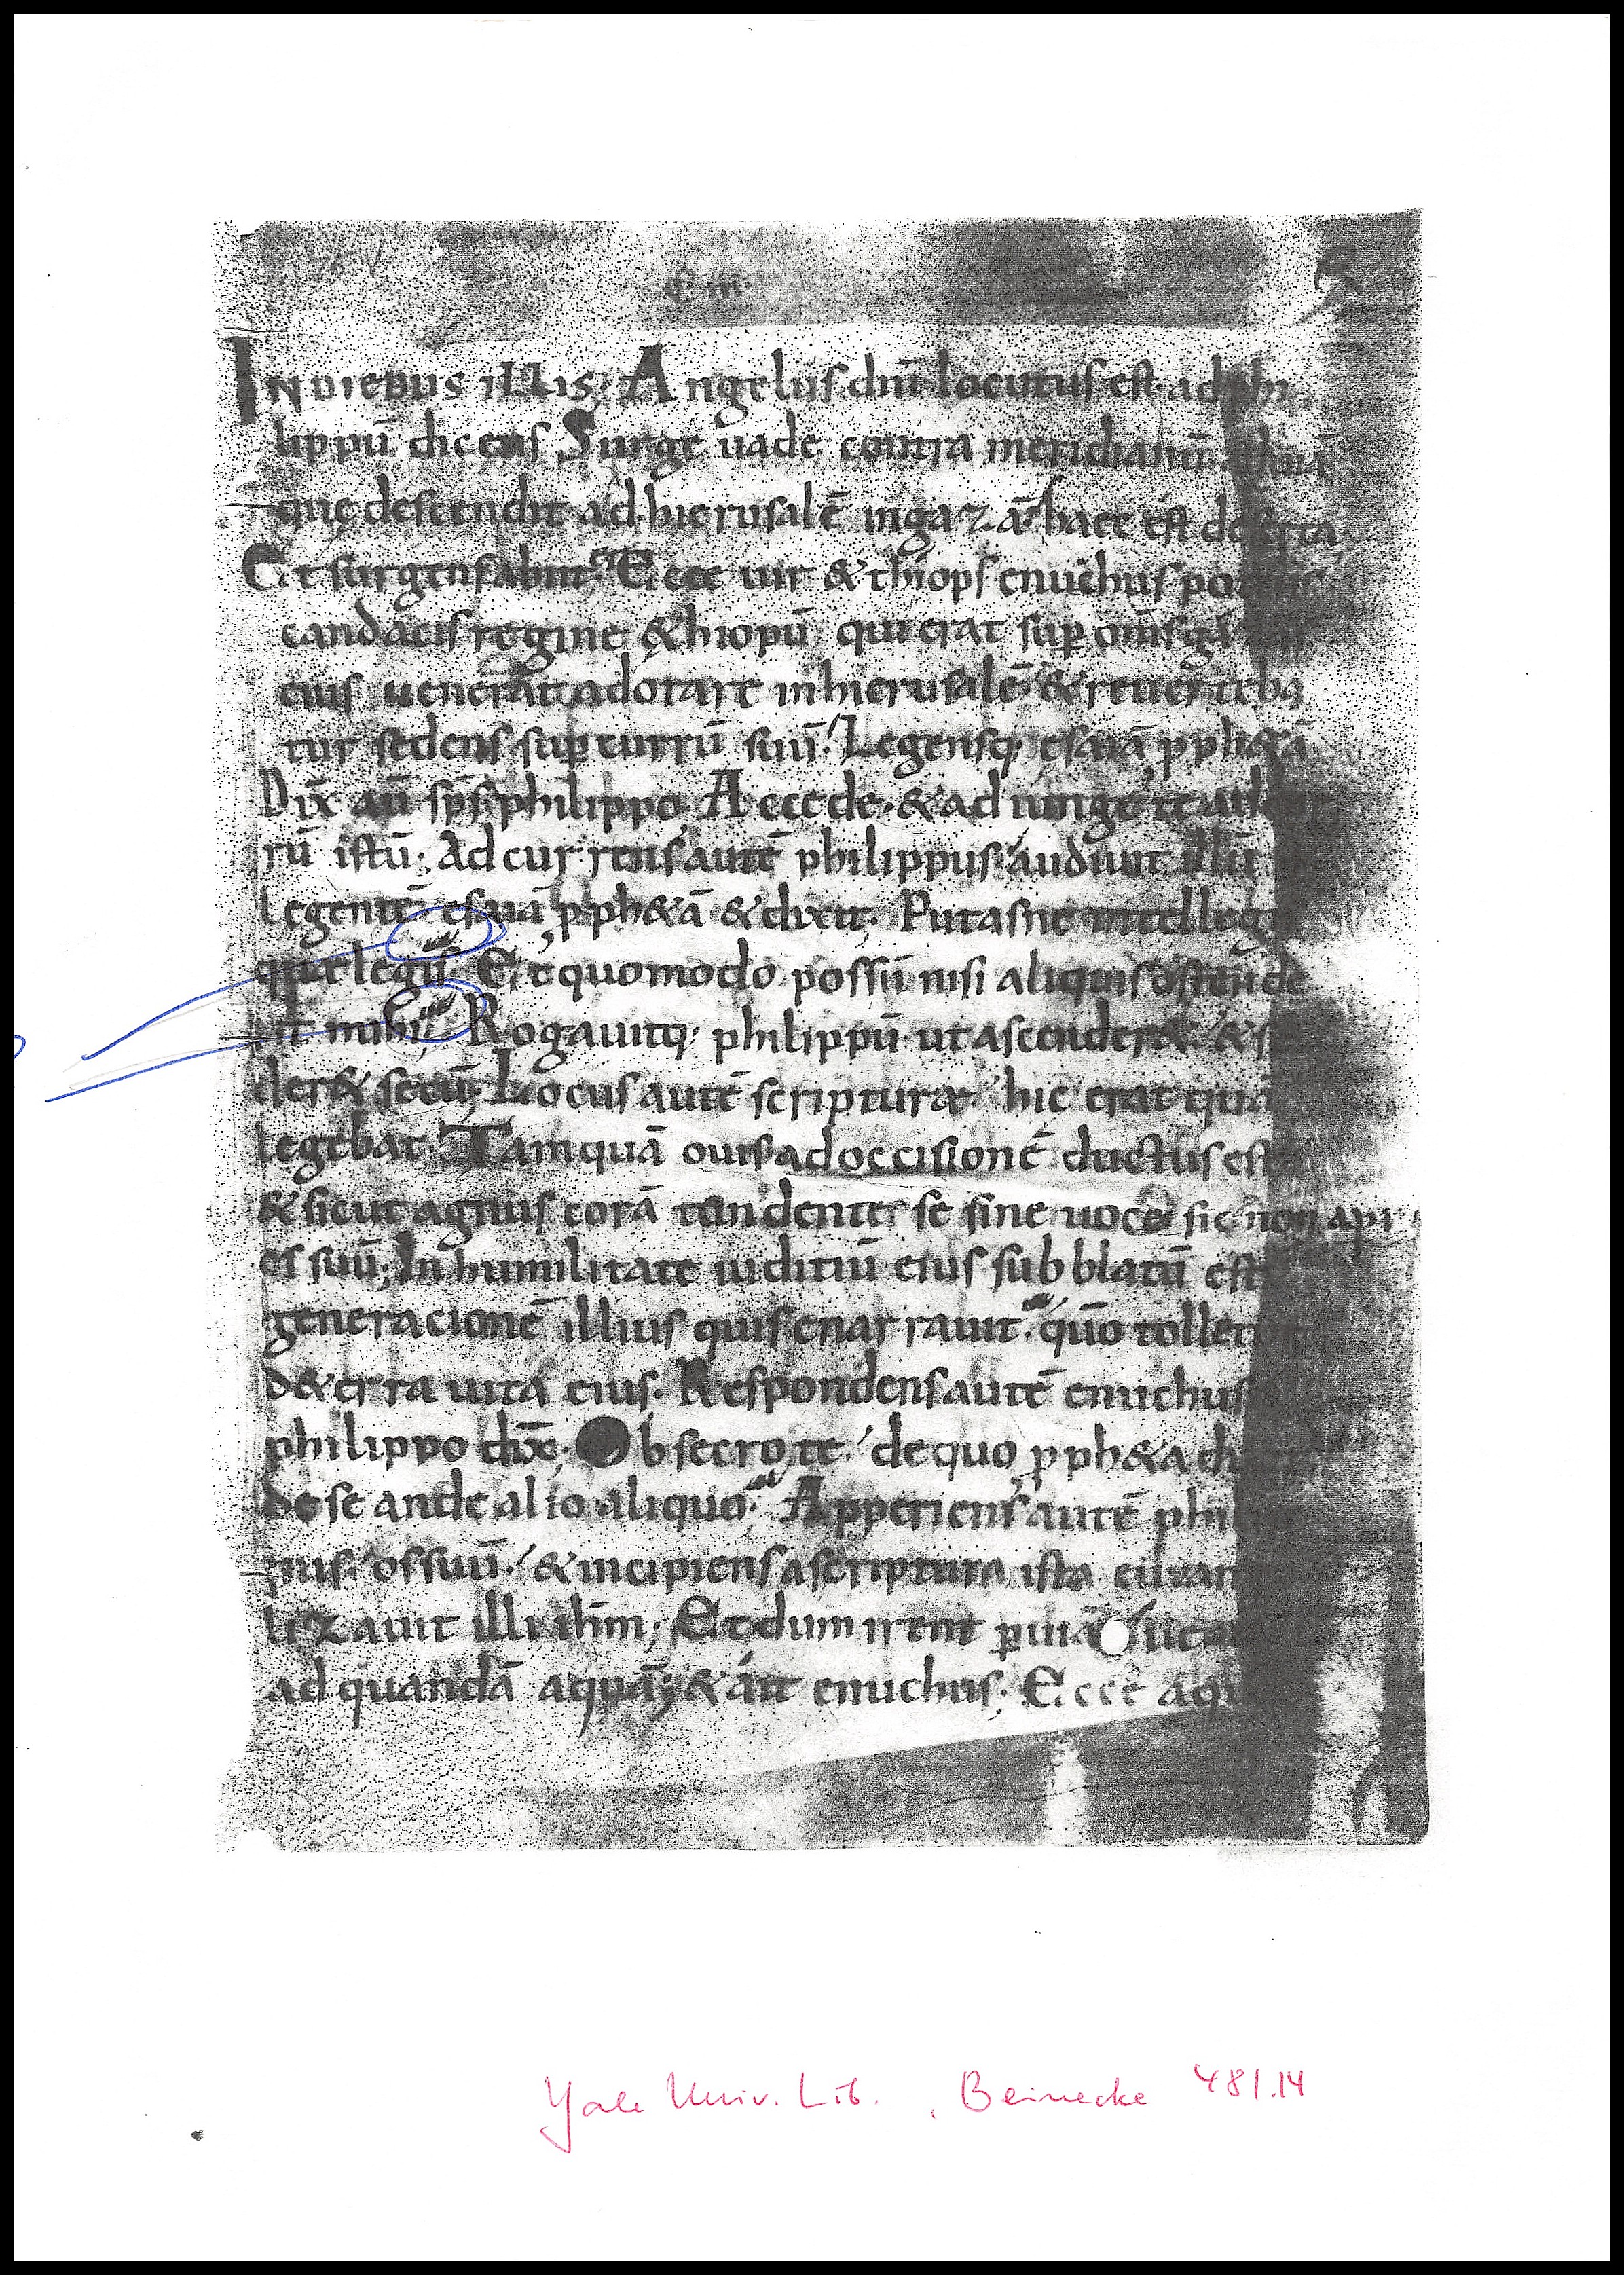 C. III.
IN DIEBUS ILLIS; Angelus dnī locutus est ad phi
lippū dicens Surge uade contra meridianū
quę descendit ad hierusalē ingazā haec est deserta
Et surgens abiit Et ecce uir &thiops enuchus potens
candacis regine &hiopū qui erat sup om̄s gazas
eius uenerat adorare in hierusalē & reuerteba
tur sedens sup currū suū. Legensq; esaiā pph&ā
Dix̄ aū sp̄s philippo Accede & adiunge te ad cur
rū istū. Ad currens autē philippus audiuit illū
legentē esaiā pph&ā & dixit. Putasne intellegis
que legis. Et quomodo possū nisi aliquis ostende
rit mihi; Rogauitq; philippū ut ascender& & se
der& secū; Locus autē scripturae hic erat quā
legebat Tamquā ouis ad occisionē ductus est
& sicut agnus corā tondente se sine uoce sic non api
os suū; In humilitate iuditiū eius subblatū est
generacionē illius quis enarrauit. quō tolletur
de&erra uita eius. Respondens autē enuchus
philippo dix̄; Obsecro te de quo pph&a
de se an de alio aliquo. Apperiens autē phi
pus os suū & incipiens a scriptura ista euuan
lizauit illi ihm; Et dum irent p uiā
ad quandā aquā; & ait enuchus. Ecce aqu
Yale Univ. Lib., Beinecke 481.14